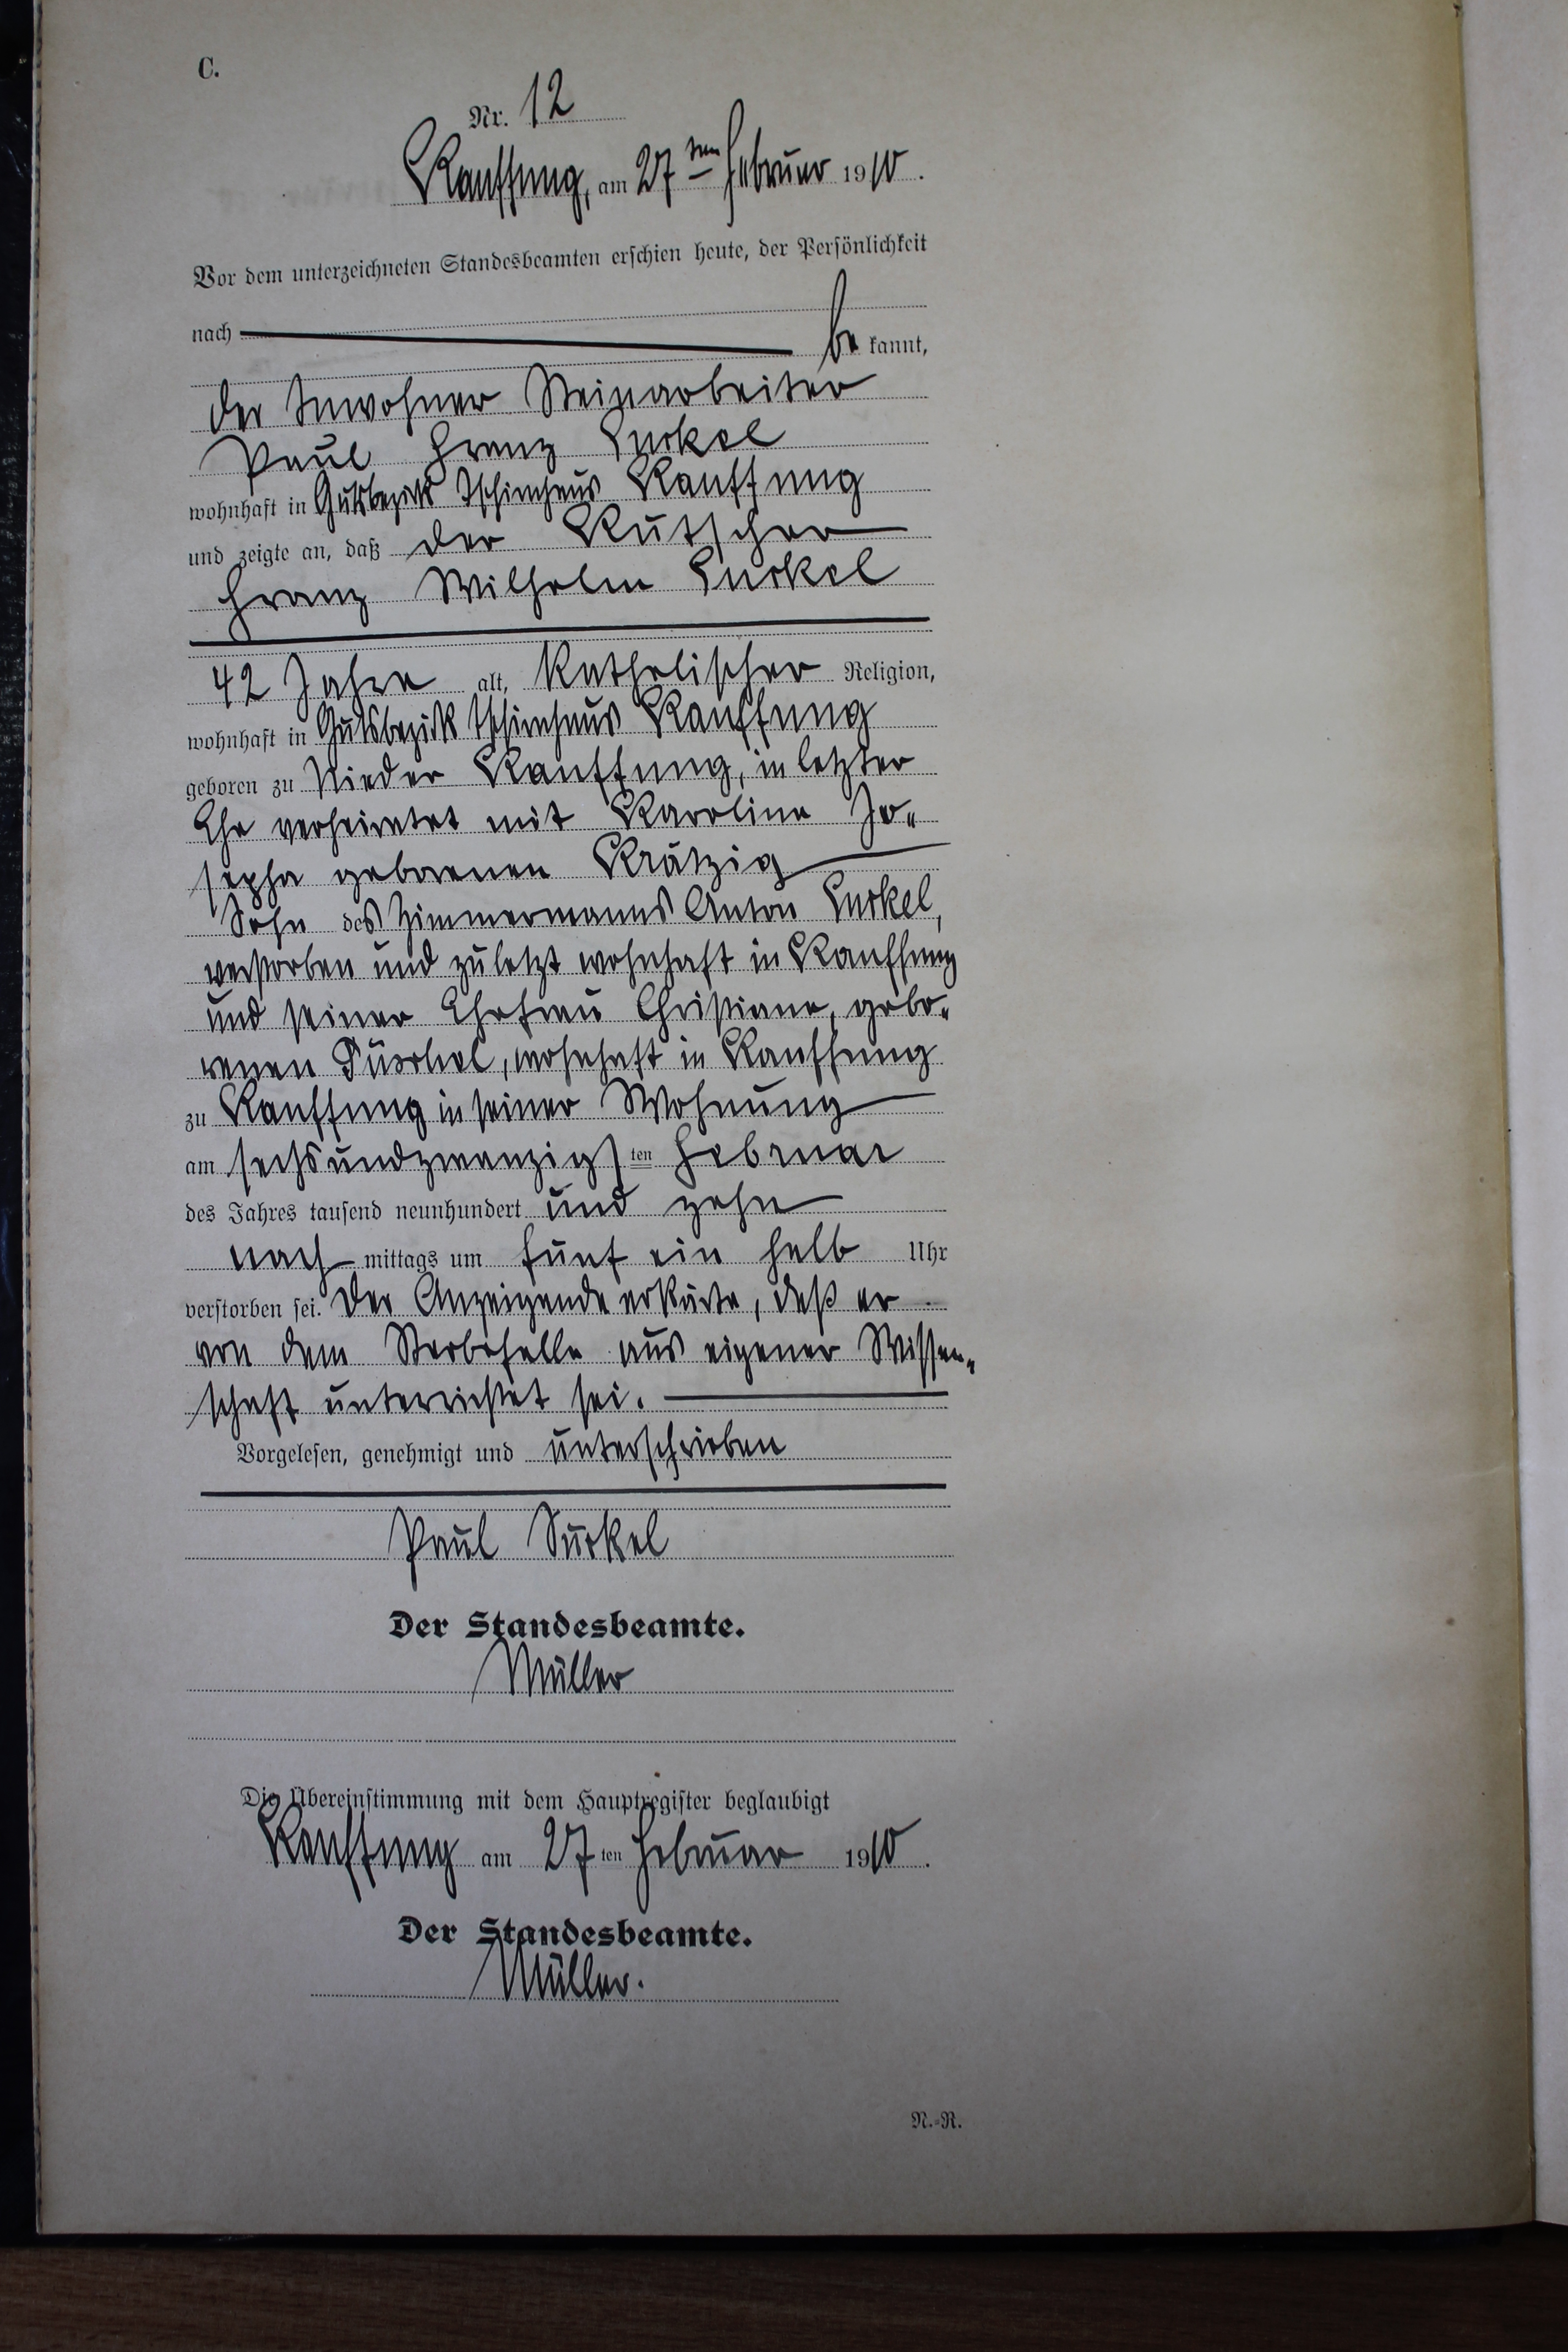 C.
Nr. 12
Kauffung, am 27ten Februar 1910.
Vor dem unterzeichneten Standesbeamten erschien heute, der Persönlichkeit
nach be kannt,
der Inwohner Steinarbeiter
Paul Franz Surkel
wohnhaft in Gutsbezirk Tschirnhaus Kauffung
und zeigte an, daß der Kutscher
Franz Wilhelm Surkel
42 Jahre alt, Katholischer Religion,
wohnhaft in Gutsbezirk Tschirnhaus Kauffung
geboren zu Nieder Kauffung, in letzter
Ehe verheiratet mit Karoline Jo„
sepha geborenen Krätzig
Sohn des Zimmermanns Anton Surkel,
verstorben und zuletzt wohnhaft in Kauffung
und seiner Ehefrau Christiane, gebo„
renen, wohnhaft in Kauffung
zu Kauffung in seiner Wohnung
am sechsundzwanzigsten Februar
des Jahres tausend neunhundert und zehn
nach mittags um fünf ein halb Uhr
verstorben sei. Der Anzeigende erklärte, daß er
von dem Sterbefalle aus eigener Wissen„
schaft unterrichtet sei.
Vorgelesen, genehmigt und unterschrieben
Paul Surkel
Der Standesbeamte.
Müller
Die Übereinstimmung mit dem Hauptregister beglaubigt
Kauffung am 27ten Februar 1910.
Der Standesbeamte.
Müller.
N.-R.